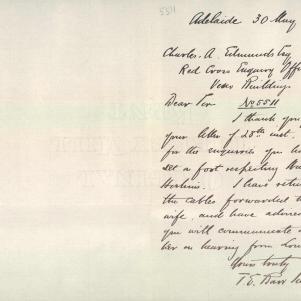 5511
Adelaide 30 May
Charles. A. Edmunds Esq
Red Cross Enquiry Offi
Verco Building
Dear Sir No 5511
I thank you
your letter of 28th inst.
for the enquiries you ha
set a foot respecting
I have retur
the cables forwarded
wife, and have advise
you will communicate
her on hearing from Lon
Yours truly
T. E. Barr